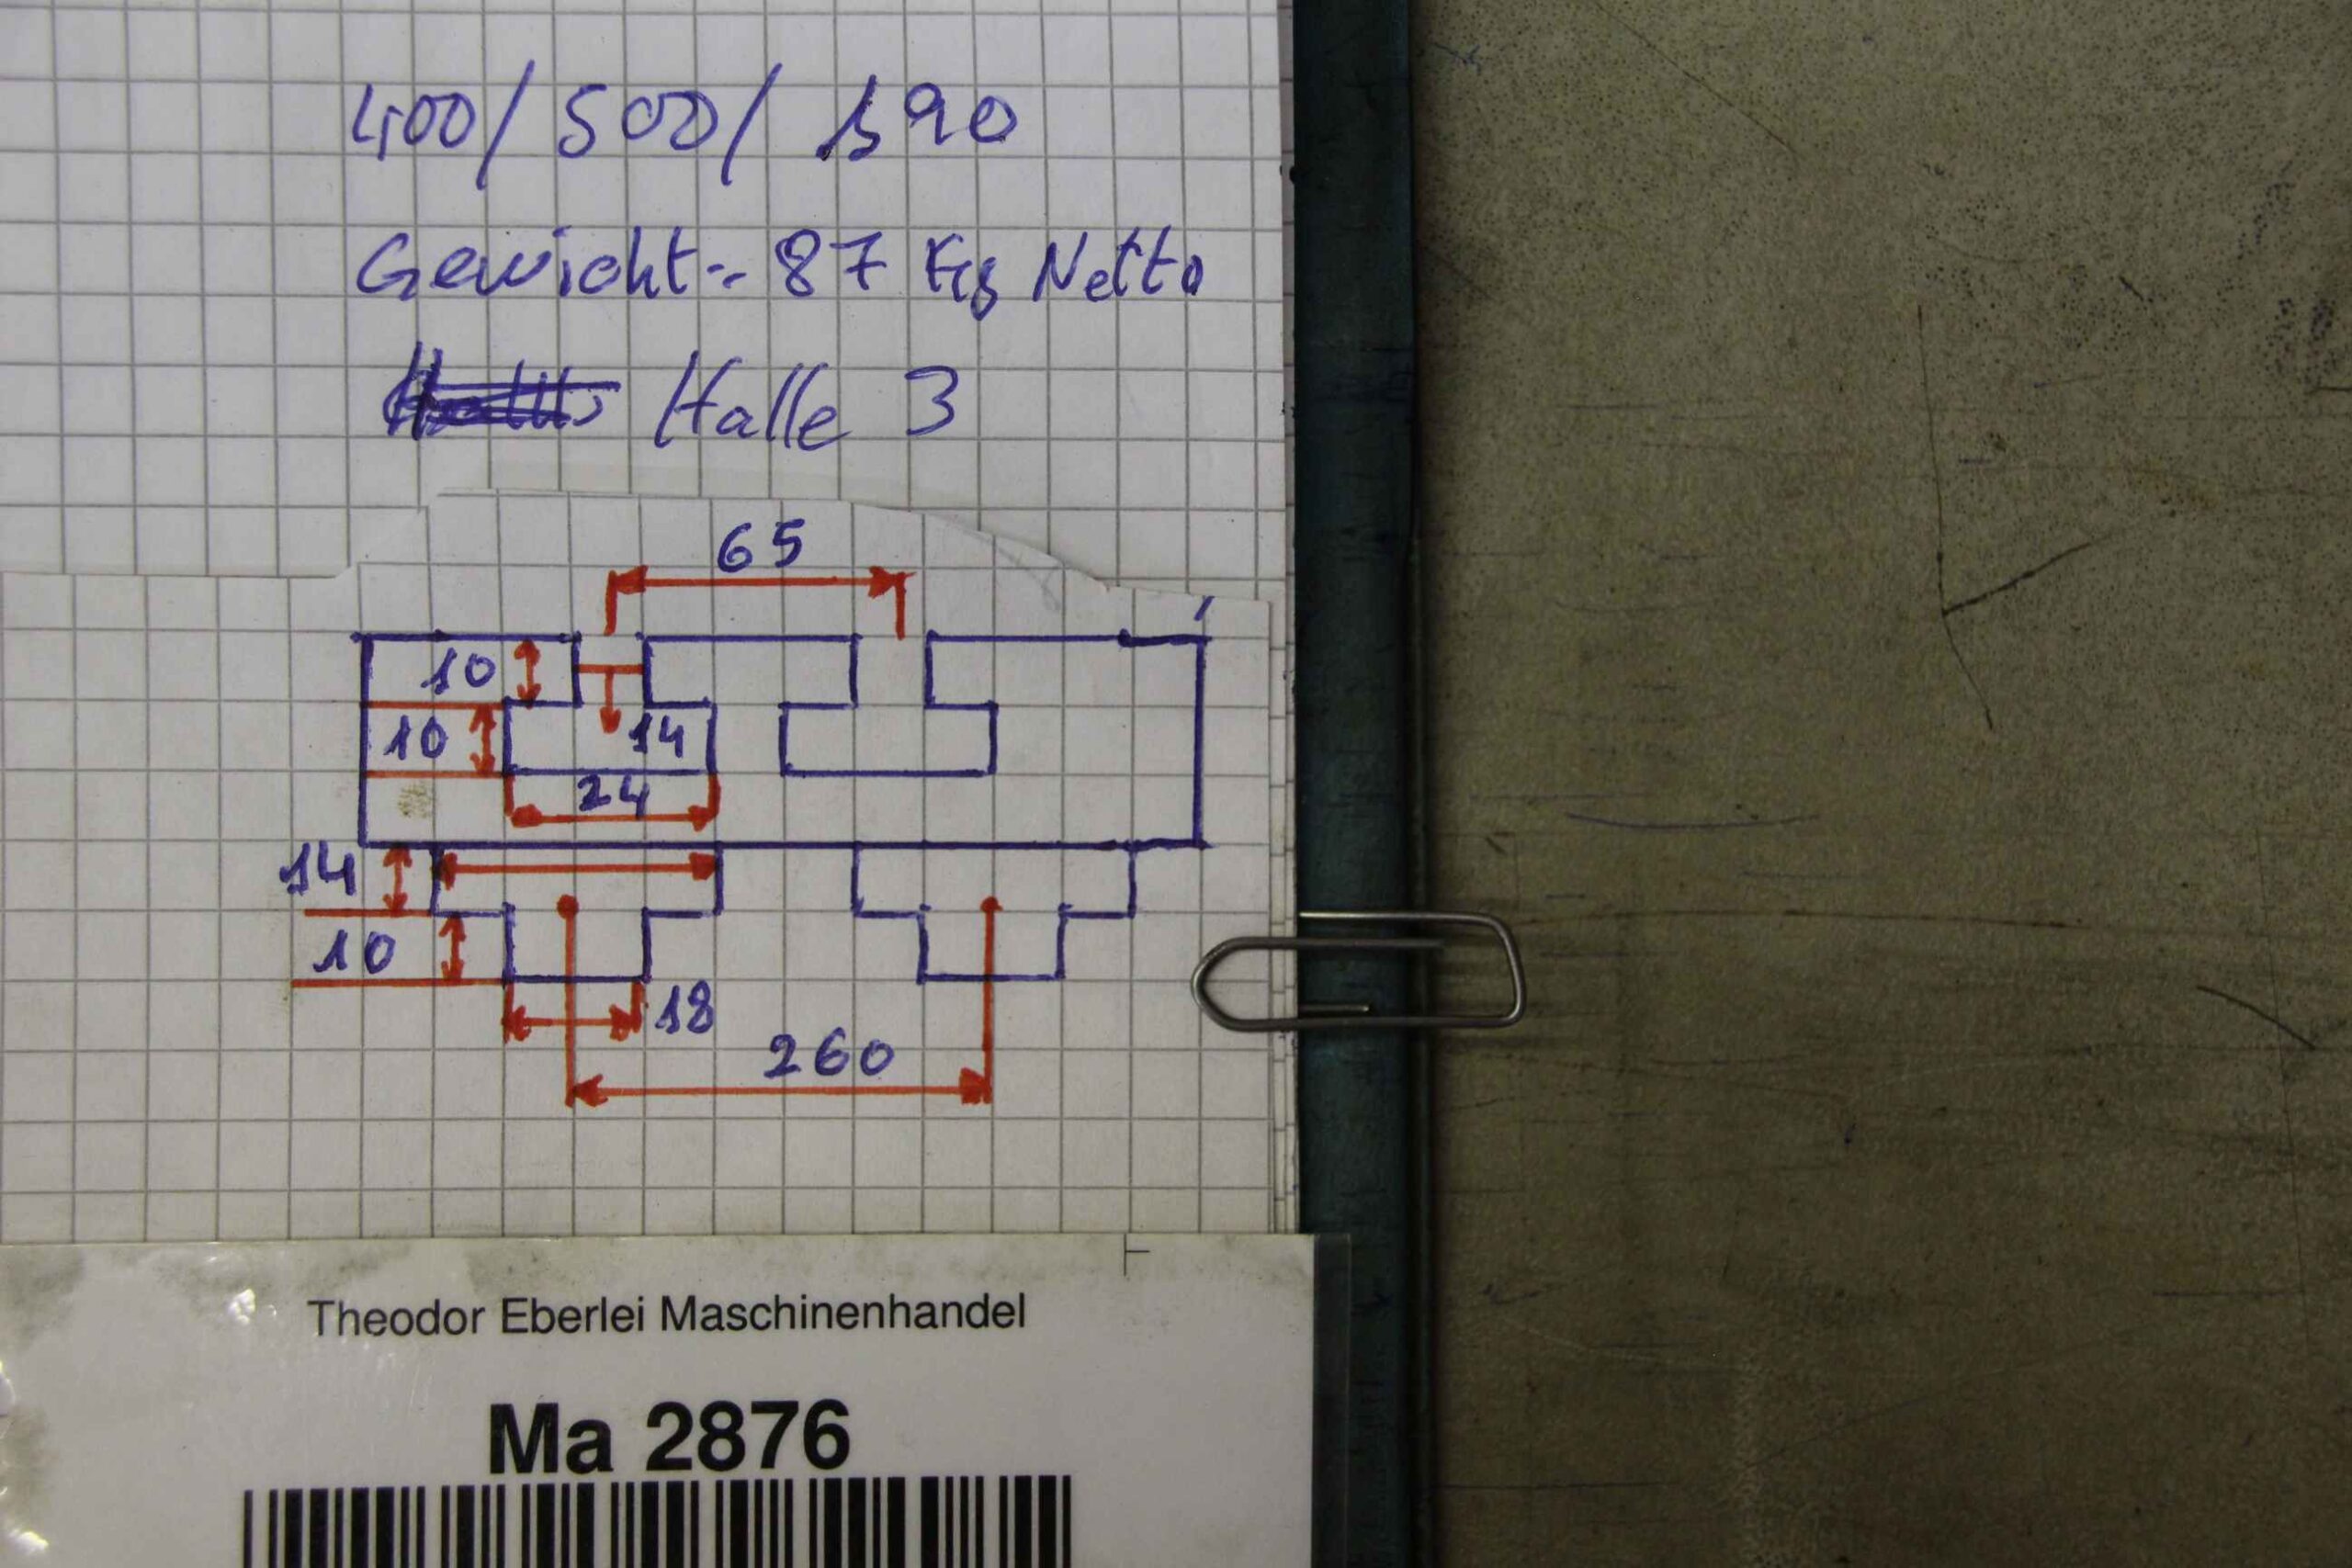 400/500/190
Gewicht-- 87 Kg Netto
Halle 3
65
10
10
14
24
14
10
18
260
Theodor Eberlei Maschinenhandel
Ma 2876